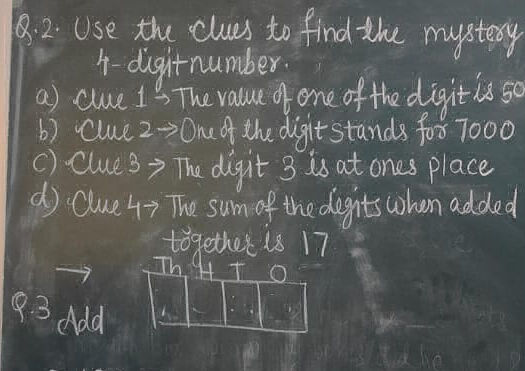 Q.2. Use the clues to find the mystery
4-digit number.
a) Clue 1 → The value of one of the digit is 50
b) Clue 2 → One of the digit stands for 7000
c) Clue 3 → The digit 3 is at ones place
d) Clue 4 → The sum of the digits when added
together is 17
→ Th H T O
Q.3 Add